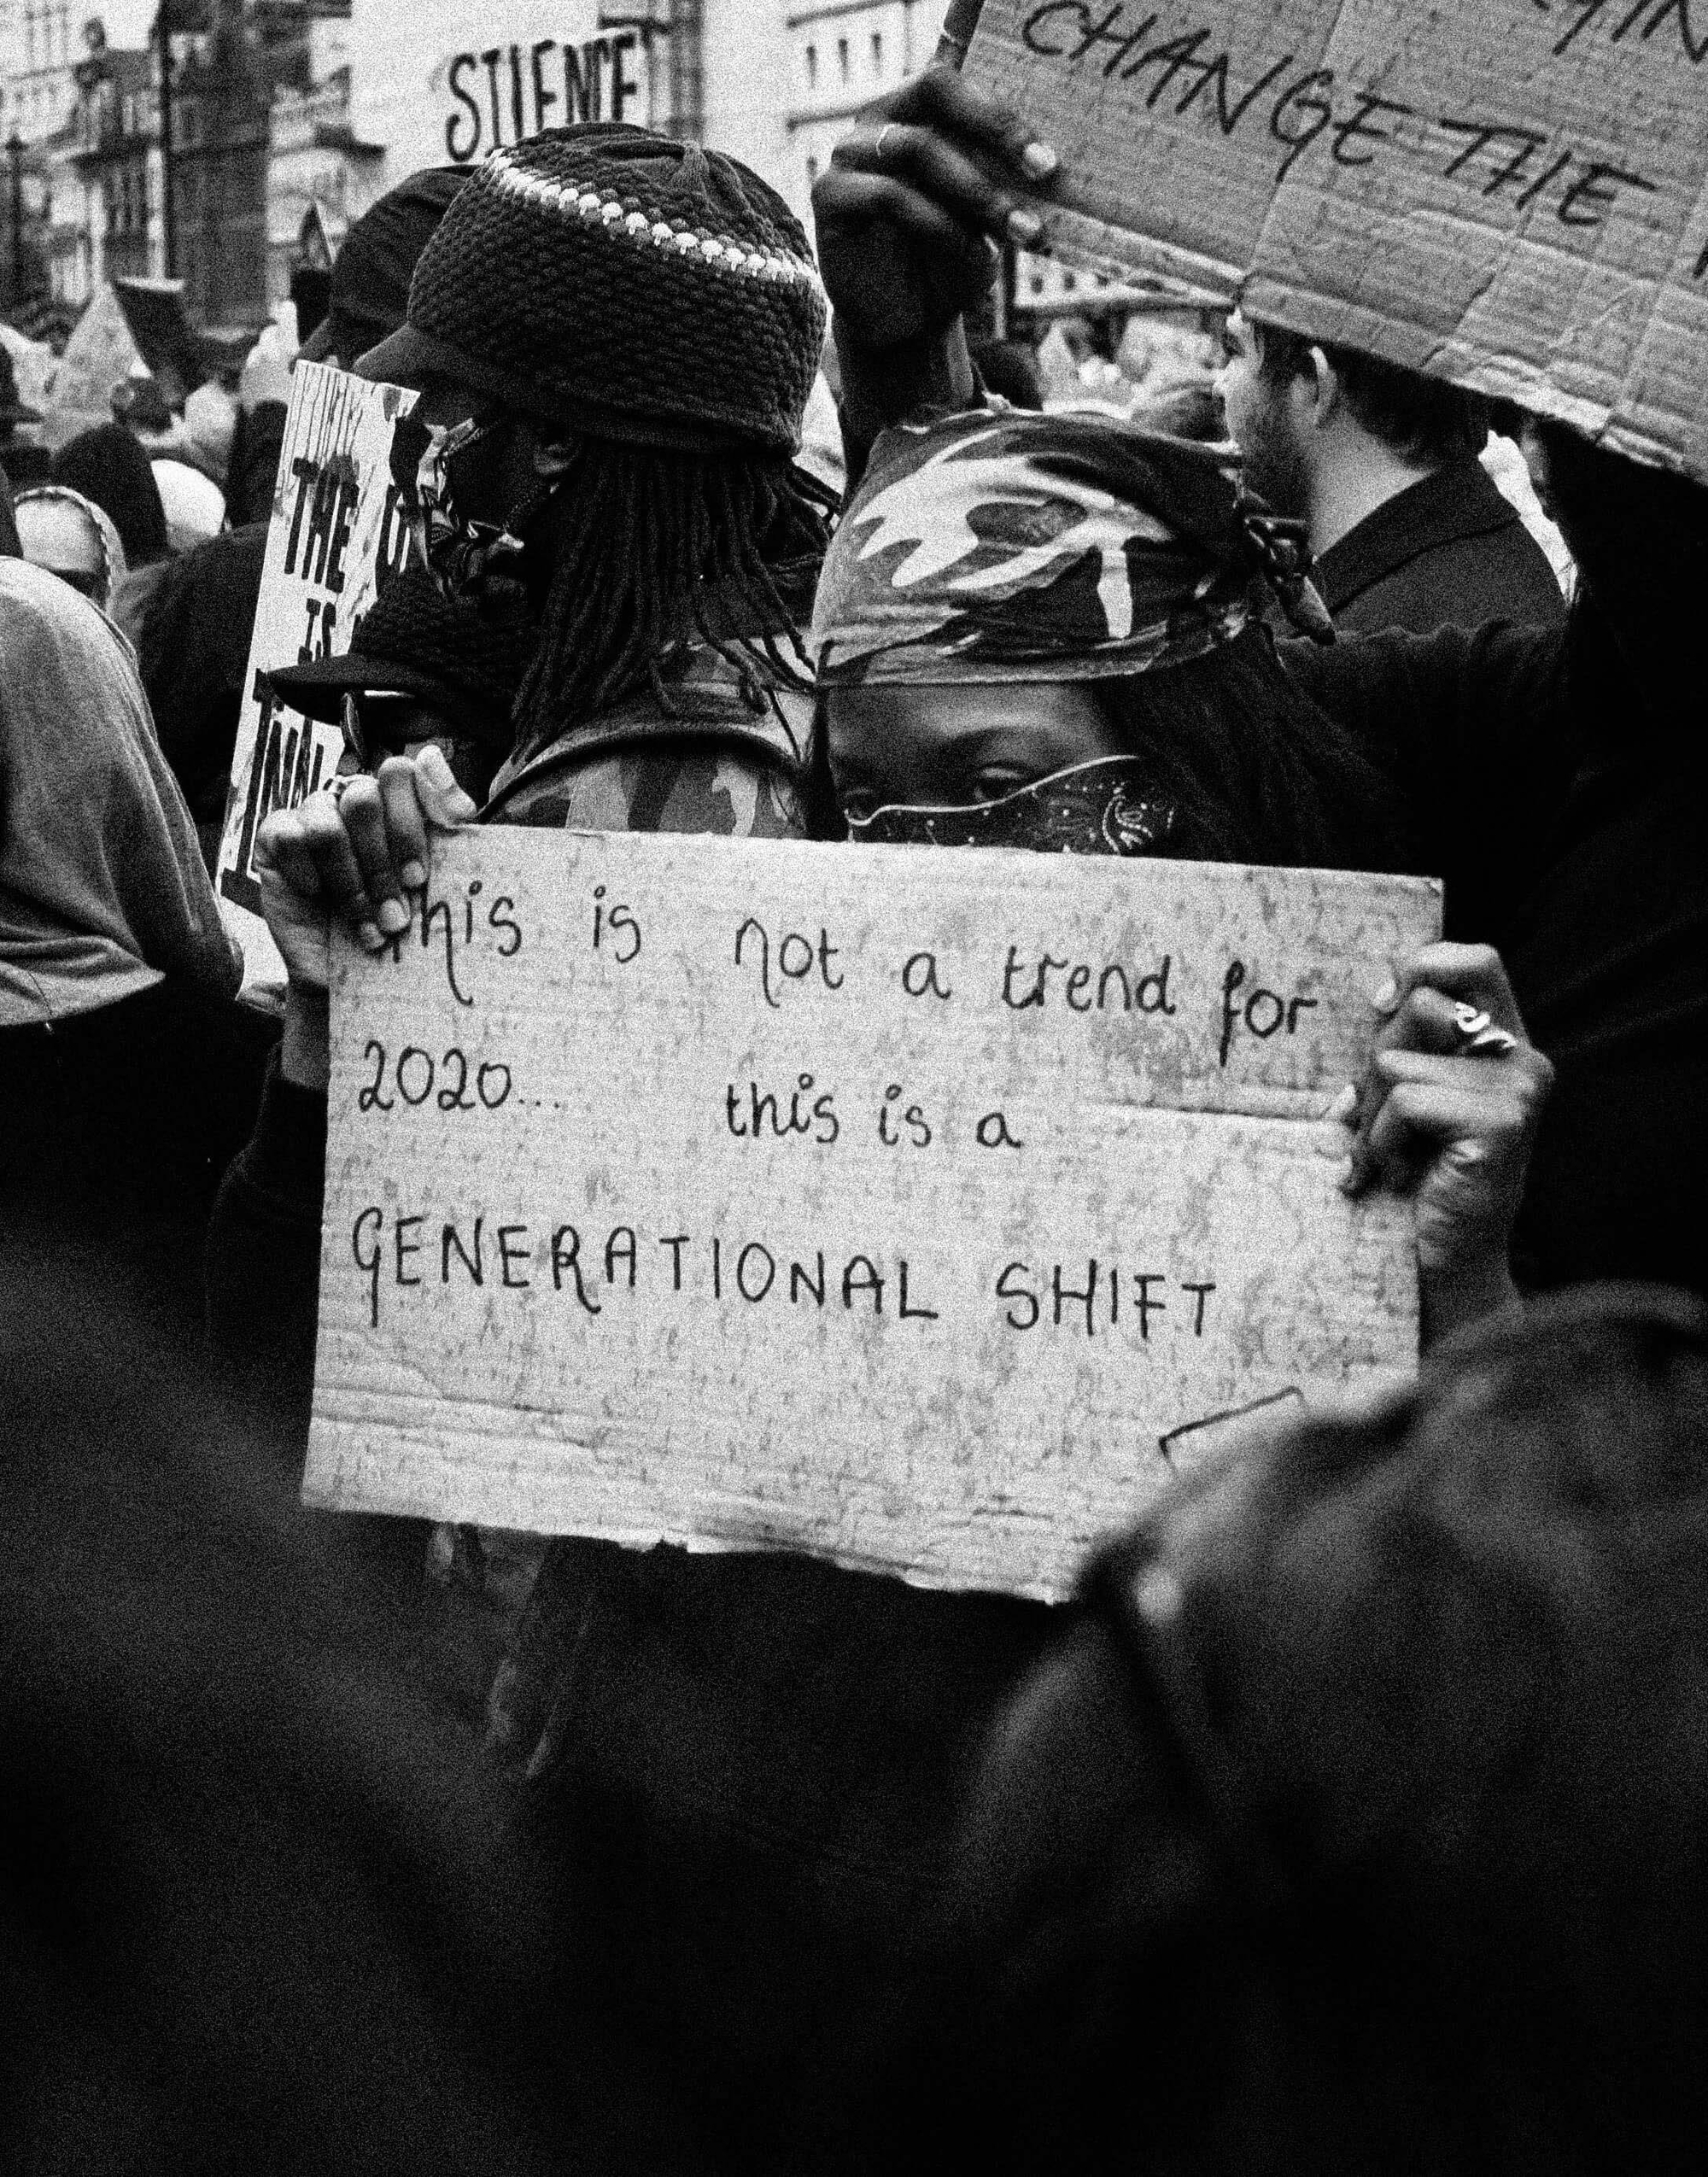 SILENCE
CHANGE THE
THE
IS
This is not a trend for
2020... this is a
GENERATIONAL SHIFT